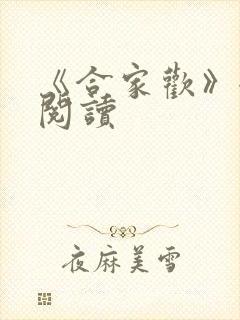 《合家歡》
閱讀
夜麻美雪